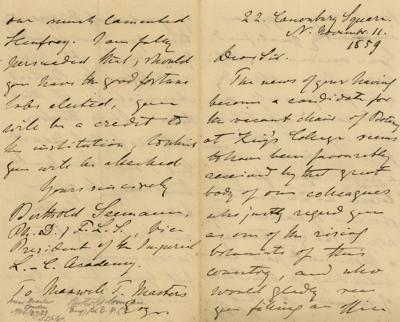 22. Canonbury Square.
N. November 11.
1859
Dear Sir.
The news of your having
become a candidate for
the vacant chair of Botany
at King's College seems
to have been favourably
received by the great
body of our colleagues
who justly regard you
as one of the rising
botanists of this
country, and who
would gladly see
you filling an office
our much lamented
Henfrey. I am fully
persuaded that, should
you have the good fortune
to be elected, you
will be a credit to
the institution, to which
you will be attached
Yours sincerely
Berthold Seemann,
Ph. D., F.L.S., Vice
President of the Imperial
L.-C. Academy.
To Maxwell T. Masters
Esqr.